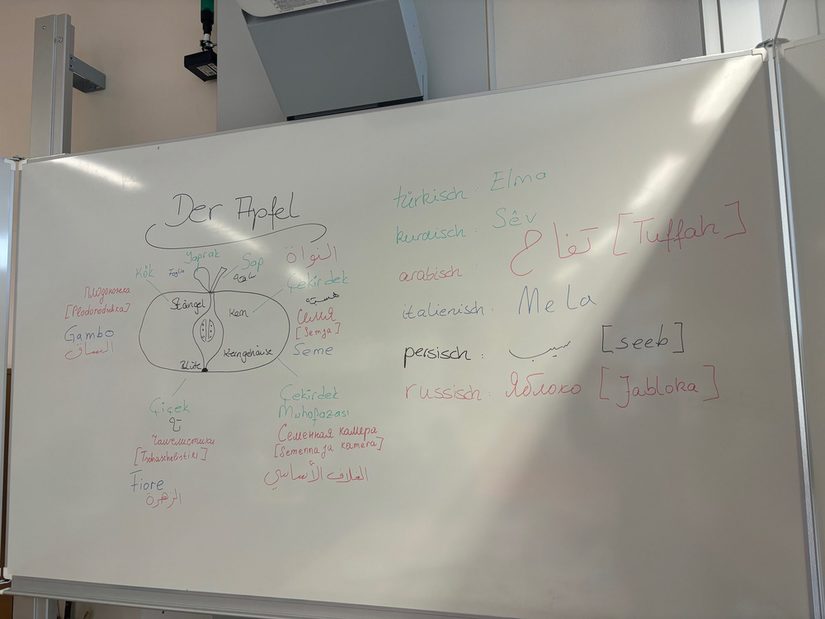 Der Apfel
Yaprak
Kök
Sap
النواة
Çekirdek
[Plodonoshka]
Stängel
Kern
هسته
Семя
[Semja]
Gambo
الساق
Kerngehäuse
Seme
Blüte
Çiçek
Çekirdek
Muhafazası
Чашелистики
[Tschaschelistiki]
Семенная камера
[Semennaja kamera]
Fiore
الزهرة
الغلاف الأساسي
türkisch: Elma
kurdisch: Sêv
arabisch تفاح [Tuffah]
italienisch: Mela
persisch: سیب [seeb]
russisch: Яблоко [Jabloka]